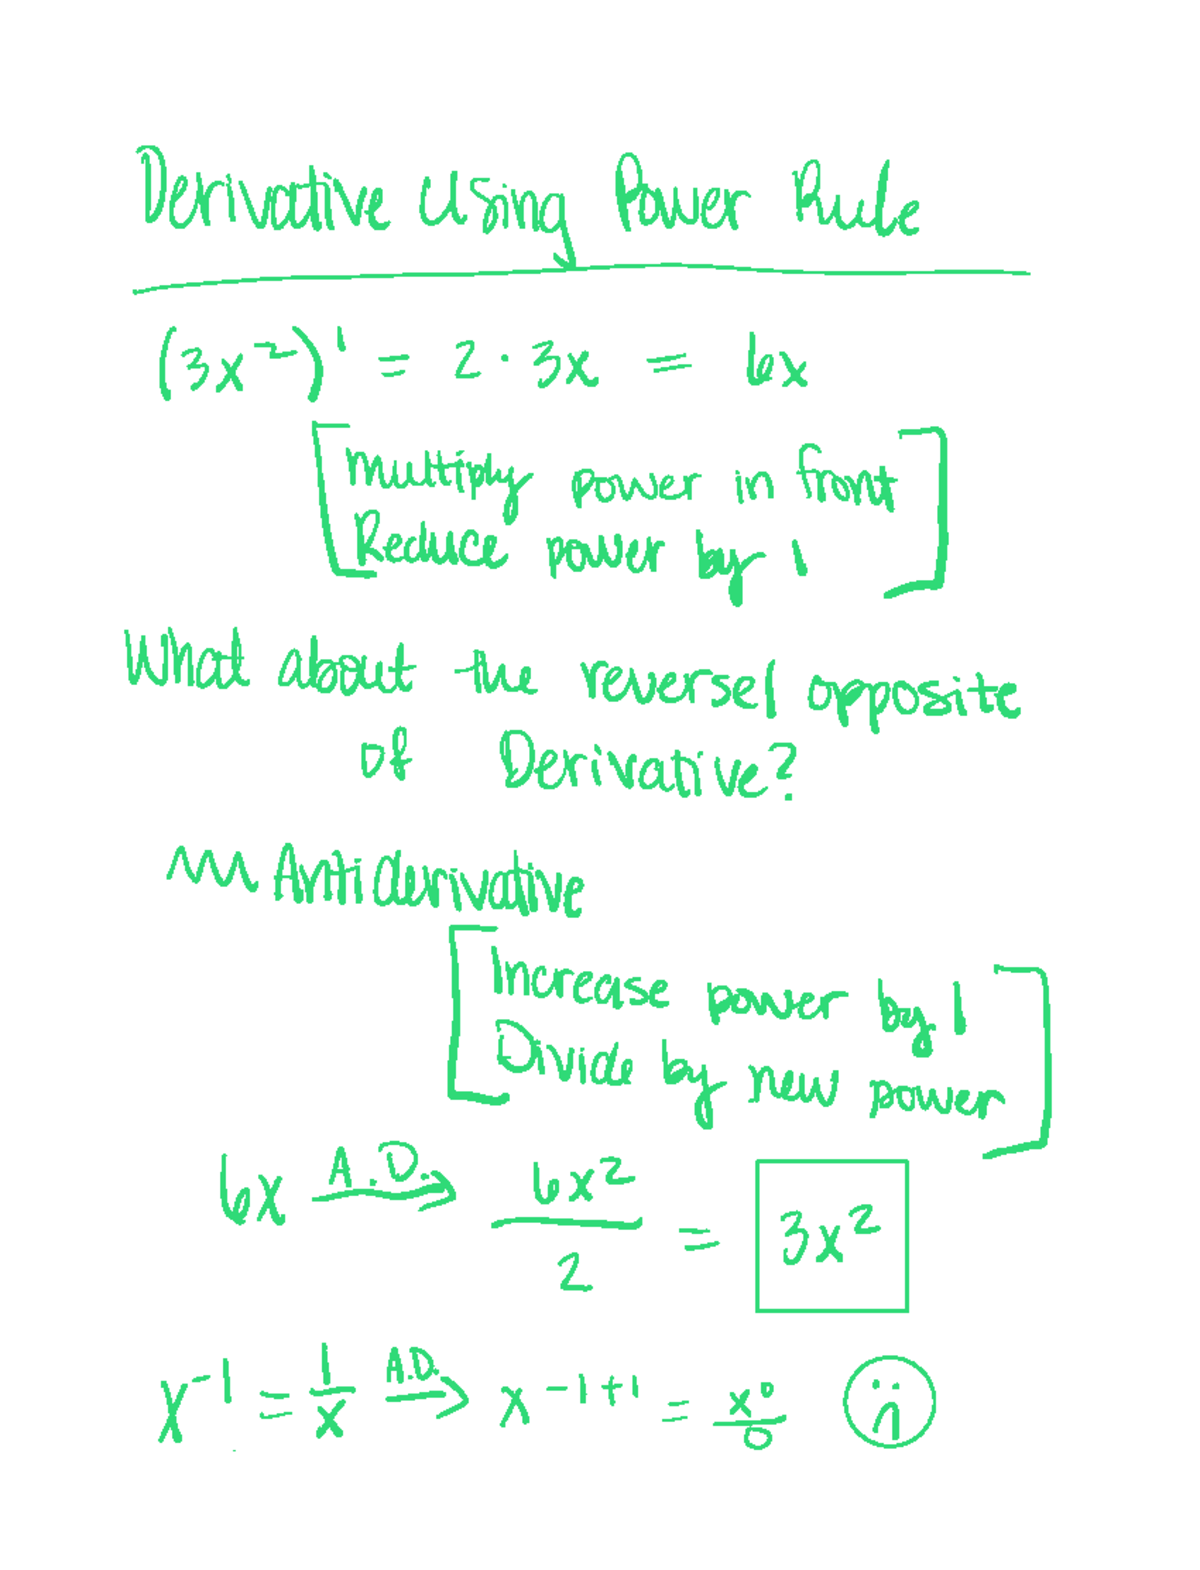 Derivative Using Power Rule
(3x²)' = 2 · 3x = 6x
[Multiply power in front
Reduce power by 1]
What about the reverse/ opposite
of Derivative?
Antiderivative
[Increase power by 1
Divide by new power]
6x A.D.→ 6x²/2 = 3x²
x⁻¹ = 1/x A.D.→ x⁻¹⁺¹ = x⁰/0